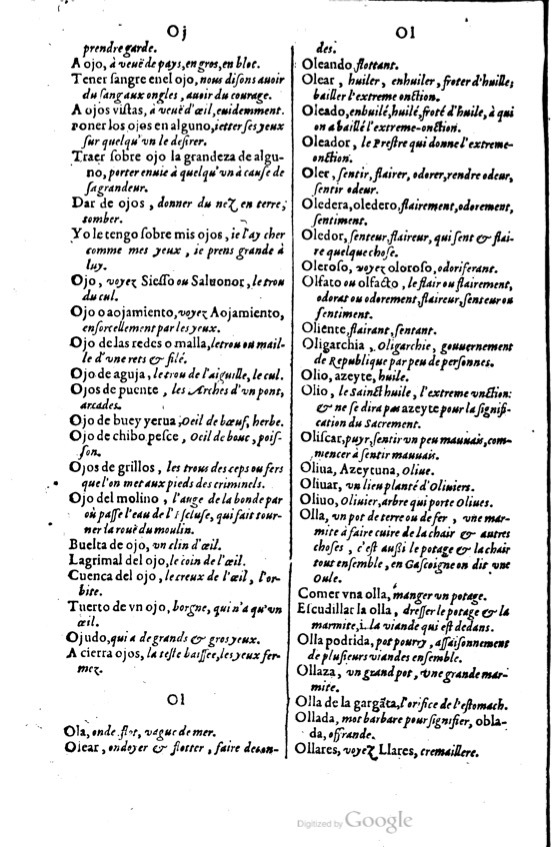 Oj
prendre garde.
A ojo, à veuë de pays, en gros, en bloc.
Tener sangre enel ojo, nous disons auoir
du sang aux ongles, auoir du courage.
A ojos vistas, à veuë d'œil, euidemment.
Poner los ojos en alguno, ietter ses yeux
sur quelqu'vn le desirer.
Traer sobre ojo la grandeza de algu-
no, porter enuie à quelqu'vn à cause de
sa grandeur.
Dar de ojos, donner du nez en terre;
tomber.
Yo le tengo sobre mis ojos, ie l'ay cher
comme mes yeux, ie prens grande à
luy.
Ojo, voyez Siesso ou Saluonor, le trou
du cul.
Ojo o aojamiento, voyez Aojamiento,
ensorcellement par les yeux.
Ojo de las redes o malla, le trou ou mail-
le d'vne rets & filé.
Ojo de aguja, le trou de l'aiguille, le cul.
Ojos de puente, les Arches d'vn pont,
arcades.
Ojo de buey yerua, Oeil de bœuf, herbe.
Ojo de chibo pesce, Oeil de bouc, pois-
son.
Ojos de grillos, les trous des ceps ou fers
que l'on met aux pieds des criminels.
Ojo del molino, l'ange de la bonde par
où passe l'eau de l'escluse, qui fait tour-
ner la rouë du moulin.
Buelta de ojo, vn clin d'œil.
Lagrimal del ojo, le coin de l'œil.
Cuenca del ojo, le creux de l'œil, l'or-
bite.
Tuerto de vn ojo, borgne, qui n'a qu'vn
œil.
Ojudo, qui a de grands & gros yeux.
A cierra ojos, la teste baissee, les yeux fer-
mez.
Ol
Ola, onde, flot, vague de mer.
Olear, ondoyer & flotter, faire des on-
Ol
des.
Oleando, flottant.
Olear, huiler, enhuiler, froter d'huille;
bailler l'extreme onction.
Oleado, enhuilé, huilé, froté d'huile, à qui
on a baillé l'extreme-onction.
Oleador, le Prestre qui donne l'extreme-
onction.
Oler, sentir, flairer, odorer, rendre odeur,
sentir odeur.
Oledera, oledero, flairement, odorement,
sentiment.
Oledor, senteur, flaireur, qui sent & flai-
re quelque chose.
Oleroso, voyez oloroso, odoriferant.
Olfato ou olfacto, le flair ou flairement,
odorat ou odorement, flaireur, senteur ou
sentiment.
Oliente, flairant, sentant.
Oligarchia, Oligarchie, gouuernement
de Republique par peu de personnes.
Olio, azeyte, huile.
Olio, le Sainct huile, l'extreme vnction:
& ne se dira pas azeyte pour la signifi-
cation du Sacrement.
Oliscar, puyr, sentir vn peu mauuais, com-
mencer à sentir mauuais.
Oliua, Azeytuna, Oliue.
Oliuar, vn lieu planté d'Oliuiers.
Oliuo, Oliuier, arbre qui porte Oliues.
Olla, vn pot de terre ou de fer, vne mar-
mite à faire cuire de la chair & autres
choses, c'est aussi le potage & la chair
tout ensemble, en Gascoigne on dit vne
Oule.
Comer vna olla, manger vn potage.
Escudillar la olla, dresser le potage & la
marmite, i. la viande qui est dedans.
Olla podrida, pot pourry, assaisonnement
de plusieurs viandes ensemble.
Ollaza, vn grand pot, vne grande mar-
mite.
Olla de la gargãta, l'orifice de l'estomach.
Ollada, mot barbare pour signifier, obla-
da, offrande.
Ollares, voyez Llares, cremaillere.
Digitized by Google